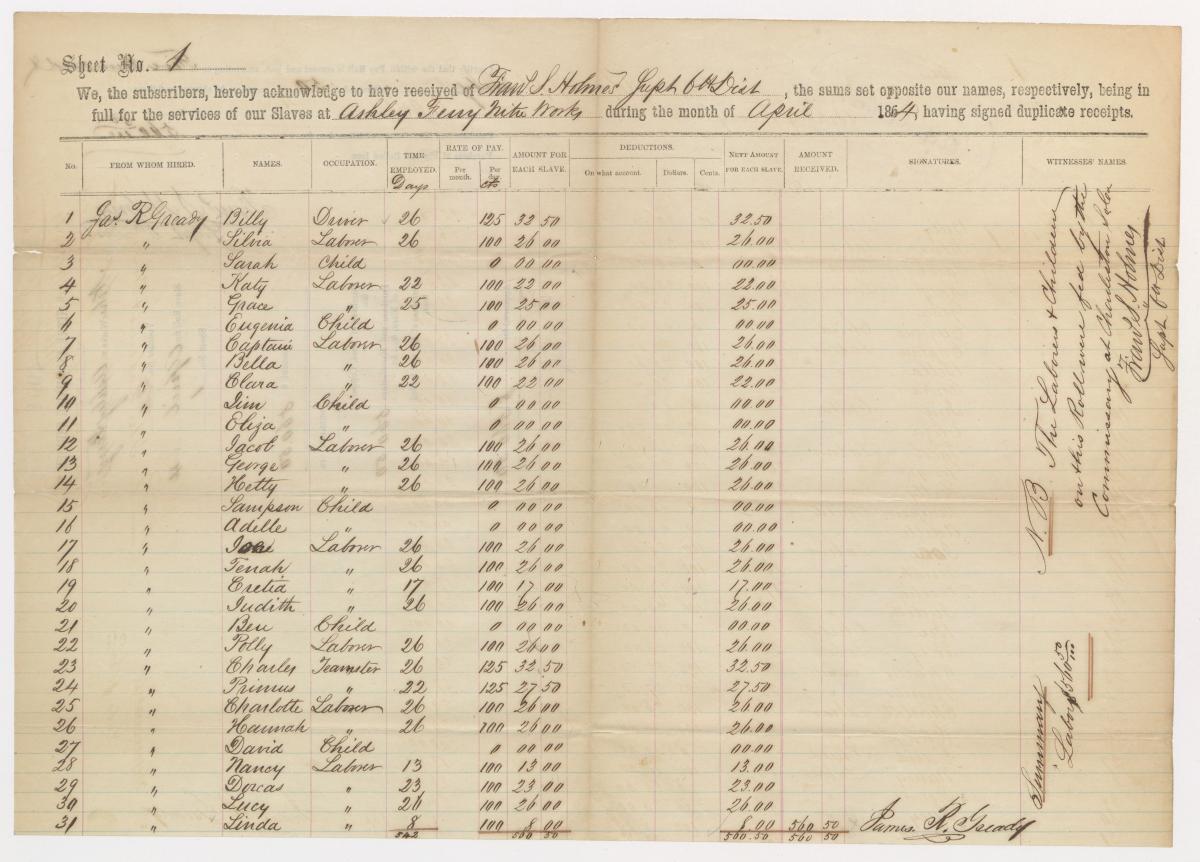 Sheet No. 1
We, the subscribers, hereby acknowledge to have received of Fran. S. Holmes Supt 6th Dist, the sums set opposite our names, respectively, being in
full for the services of our Slaves at Ashley Ferry Nitre Works during the month of April 1864, having signed duplicate receipts.
No. FROM WHOM HIRED. NAMES. OCCUPATION. TIME EMPLOYED. Days RATE OF PAY. Per month. Per day. cts AMOUNT FOR EACH SLAVE. DEDUCTIONS. On what account. Dollars. Cents. NETT AMOUNT FOR EACH SLAVE. AMOUNT RECEIVED. SIGNATURES. WITNESSES' NAMES.
1 Jas. R Gready Billy Driver 26 125 32 50 32.50
2 " Silvia Laborer 26 100 26 00 26.00
3 " Sarah Child 0 00 00 00.00
4 " Katy Laborer 22 100 22 00 22.00
5 " Grace " 25 100 25 00 25.00
6 " Eugenia Child 0 00 00 00.00
7 " Captain Laborer 26 100 26 00 26.00
8 " Bella " 26 100 26 00 26.00
9 " Clara " 22 100 22 00 22.00
10 " Jim Child 0 00 00 00.00
11 " Eliza " 0 00 00 00.00
12 " Jacob Laborer 26 100 26 00 26.00
13 " George " 26 100 26 00 26.00
14 " Hetty " 26 100 26 00 26.00
15 " Sampson Child 0 00 00 00.00
16 " Adelle " 0 00 00 00.00
17 " Laborer 26 100 26 00 26.00
18 " Tenah " 26 100 26 00 26.00
19 " Cretia " 17 100 17 00 17.00
20 " Judith " 26 100 26 00 26.00
21 " Ben Child 0 00 00 00.00
22 " Polly Laborer 26 100 26 00 26.00
23 " Charles Teamster 26 125 32 50 32.50
24 " Primus " 22 125 27 50 27.50
25 " Charlotte Laborer 26 100 26 00 26.00
26 " Hannah " 26 100 26 00 26.00
27 " David Child 0 00 00 00.00
28 " Nancy Laborer 13 100 13 00 13.00
29 " Dorcas " 23 100 23 00 23.00
30 " Lucy " 26 100 26 00 26.00
31 " Linda " 8 100 8 00 8.00 560 50 James R. Gready
542 560 50 560.50 560 50
N.B. The Laborers & Children
on this Roll were fed by the
Commissary at Charleston
Fran. S. Holmes
Supt 6th Dist
Summary
Labor $560 50